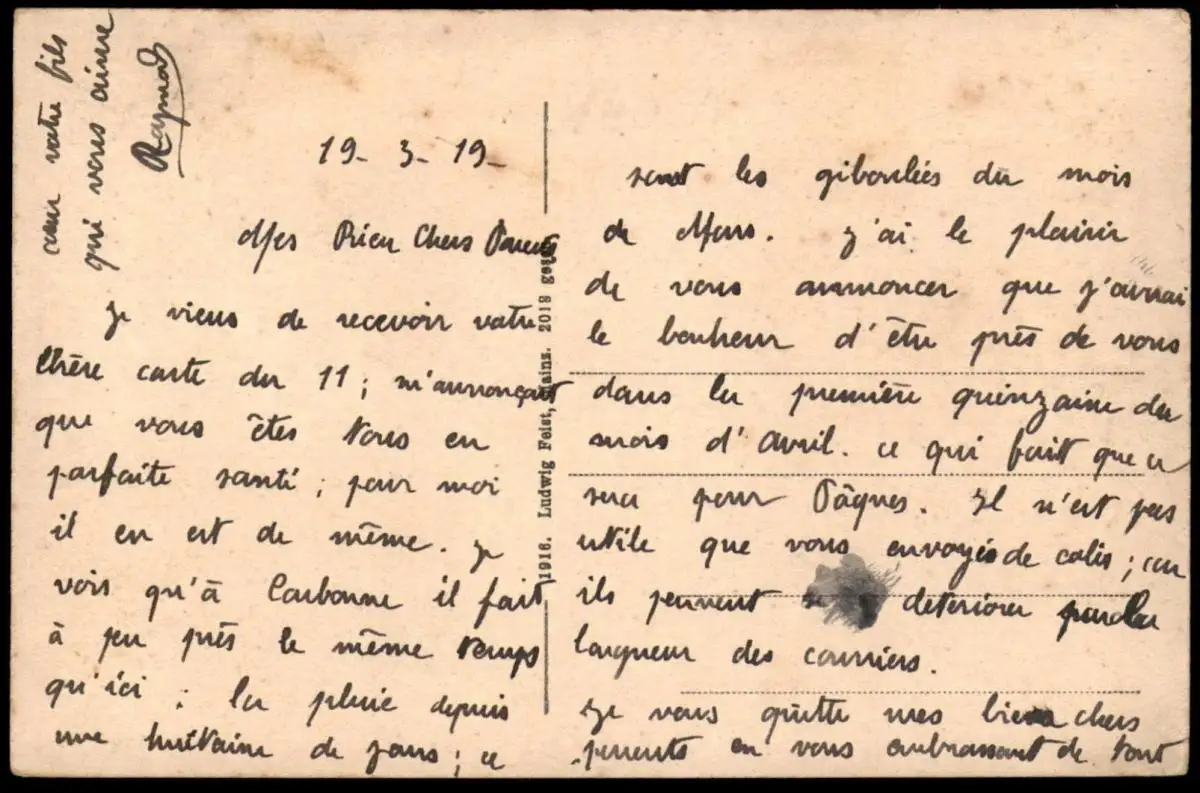 19-3-19-
Mes Bien Chers Parents
Je viens de recevoir votre
Chère carte du 11 ; m'annonçant
que vous êtes tous en
parfaite santé ; pour moi
il en est de même. Je
vois qu'à Carbonne il fait
à peu près le même temps
qu'ici ; la pluie depuis
une huitaine de jours ; ce
sont les giboulées du mois
de Mars. J'ai le plaisir
de vous annoncer que j'aurai
le bonheur d'être près de vous
dans la première quinzaine du
mois d'avril. ce qui fait que ce
sera pour Pâques. Il n'est pas
utile que vous envoyés de colis ; car
ils peuvent se détériorer par la
longueur des courriers.
Je vous quitte mes bien chers
parents en vous embrassant de tout
cœur votre fils
qui vous aime
Raymond
1916. Ludwig Feist, Mainz. 2018 gesch